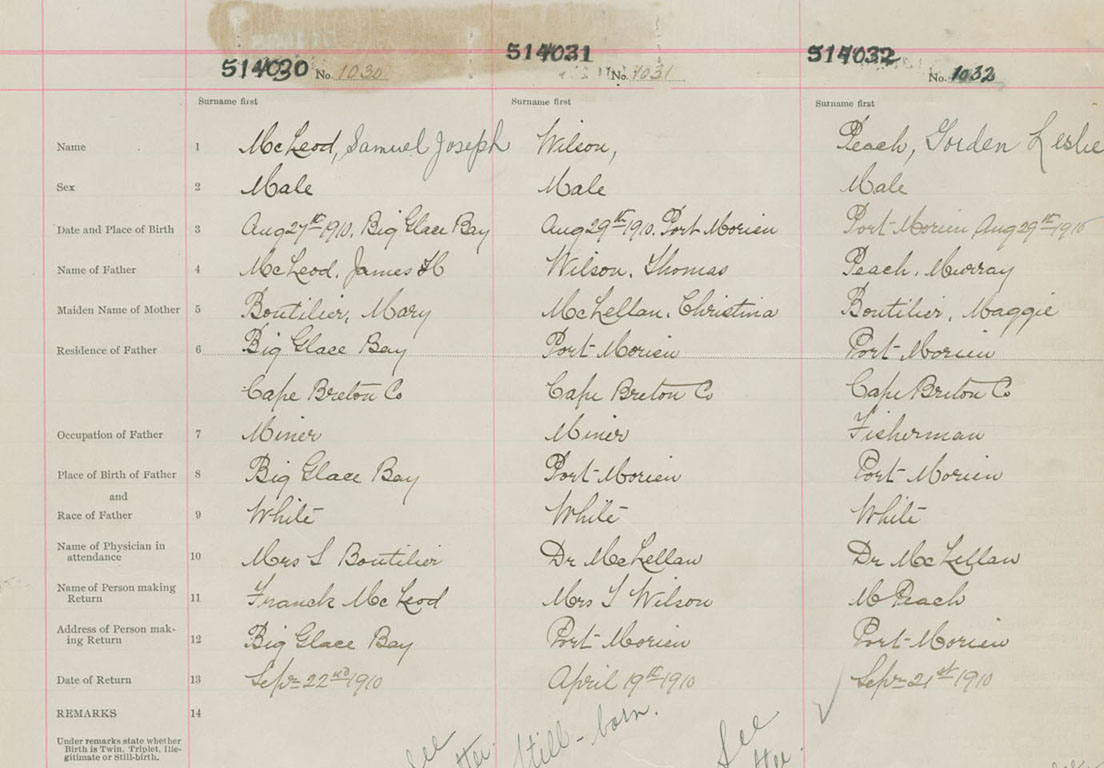 514030 No. 1030 514031 No. 1031 514032 No. 1032
Surname first Surname first Surname first
Name 1 McLeod, Samuel Joseph Wilson, Peach, Gorden Leslie
Sex 2 Male Male Male
Date and Place of Birth 3 Aug 27th 1910. Big Glace Bay Aug 29th 1910. Port Morien Port Morien Aug 29th 1910
Name of Father 4 McLeod. James H Wilson. Thomas Peach. Murray
Maiden Name of Mother 5 Boutilier, Mary McLellan. Christina Boutilier, Maggie
Residence of Father 6 Big Glace Bay Port Morien Port Morien
Cape Breton Co Cape Breton Co Cape Breton Co
Occupation of Father 7 Miner Miner Fisherman
Place of Birth of Father 8 Big Glace Bay Port Morien Port Morien
and
Race of Father 9 White White White
Name of Physician in
attendance 10 Mrs S Boutilier Dr McLellan Dr McLellan
Name of Person making
Return 11 Franck McLeod Mrs T Wilson M Peach
Address of Person mak-
ing Return 12 Big Glace Bay Port Morien Port Morien
Date of Return 13 Sept 22nd 1910 April 19th 1910 Sept 21st 1910
REMARKS 14
Under remarks state whether
Birth is Twin, Triplet, Ille-
gitimate or Still-birth.
See Still-born. See